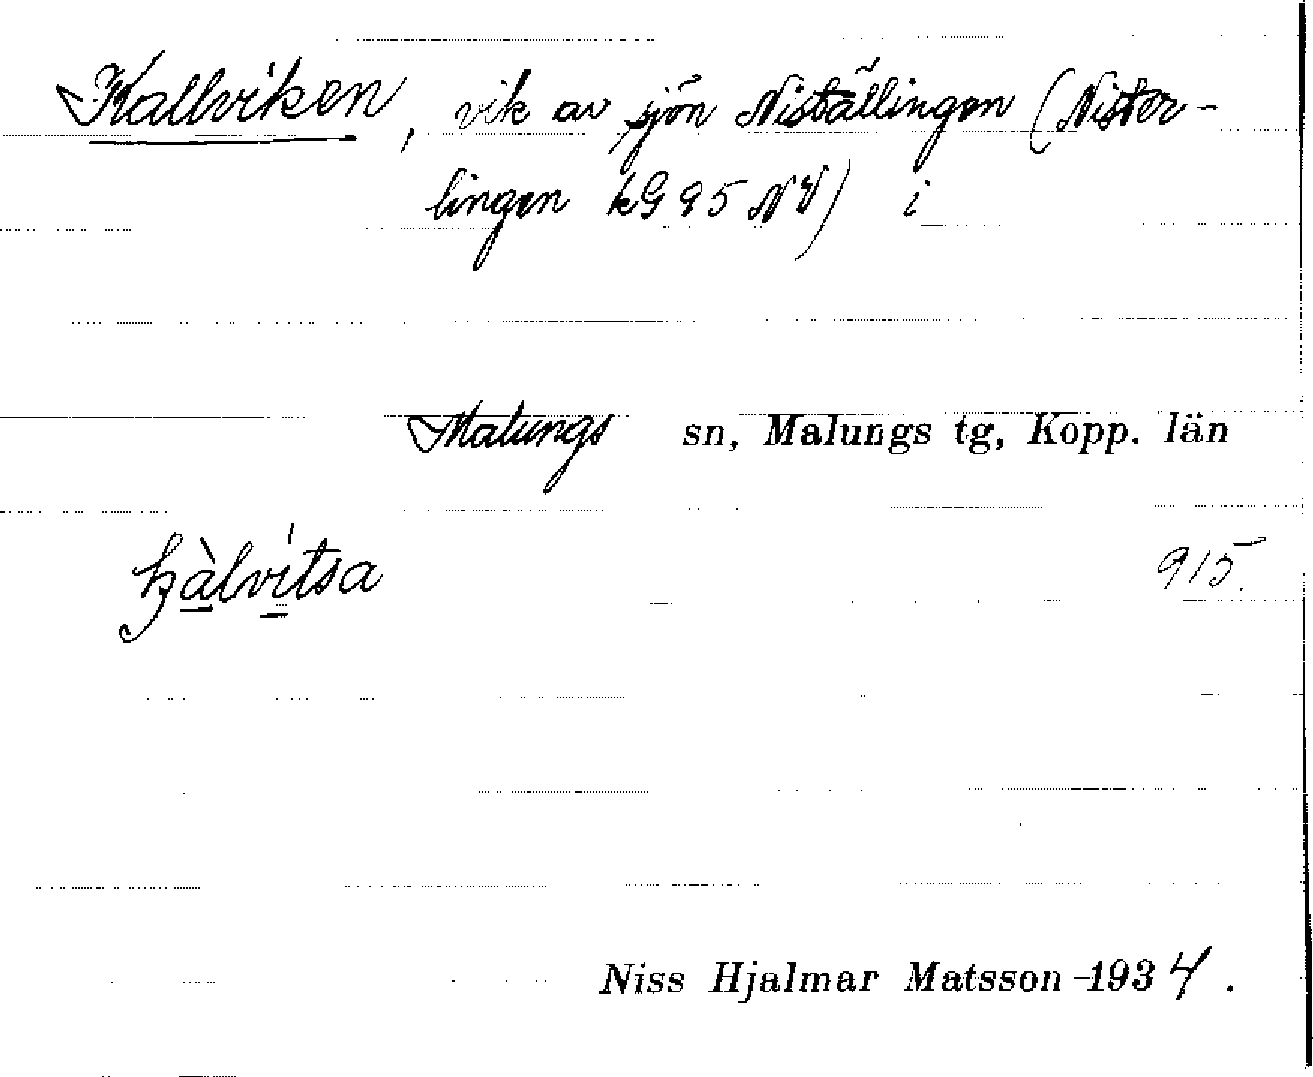 Kallviken, vik av sjön Niställingen (Nister-
lingen kG 95 NV) i
Malungs sn, Malungs tg, Kopp. län
915.
Niss Hjalmar Matsson -1934.